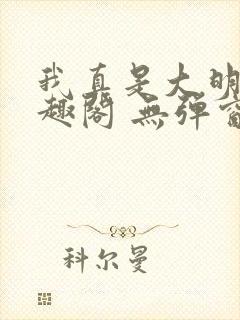 我真是大明
趣阁 無弹窗
科尔曼